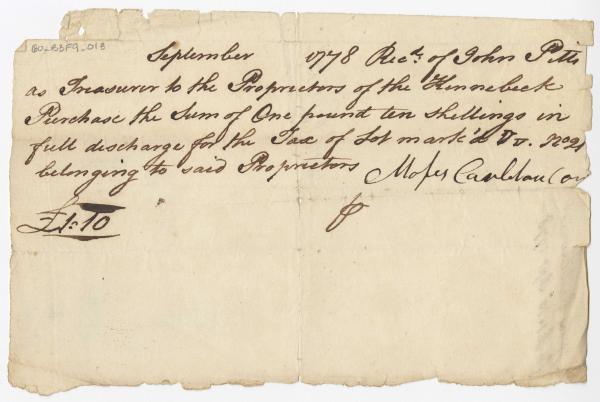 GO-B3F9-013
September 1778 Rec.d of John Pitts
as Treasurer to the Proprietors of the Kennebeck
Purchase the Sum of One pound ten shillings in
full discharge for the Tax of Lot mark'd No 21
belonging to said Proprietors Moses Carleton
£1:10